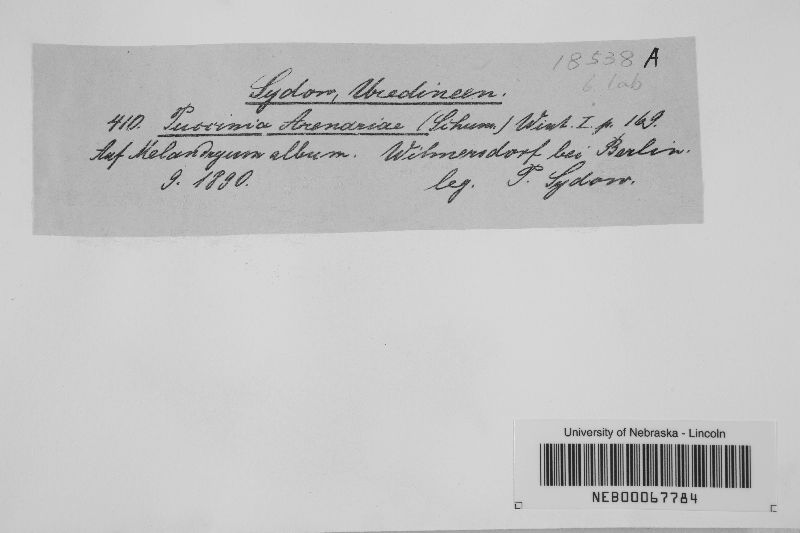 18538 A
6. lab
Sydow, Uredineen.
410. Puccinia Arenariae (Schum.) Wint. I. p. 169.
Auf Melandryum album. Wilmersdorf bei Berlin.
9. 1890. leg. P. Sydow.
University of Nebraska - Lincoln
NEB00067784